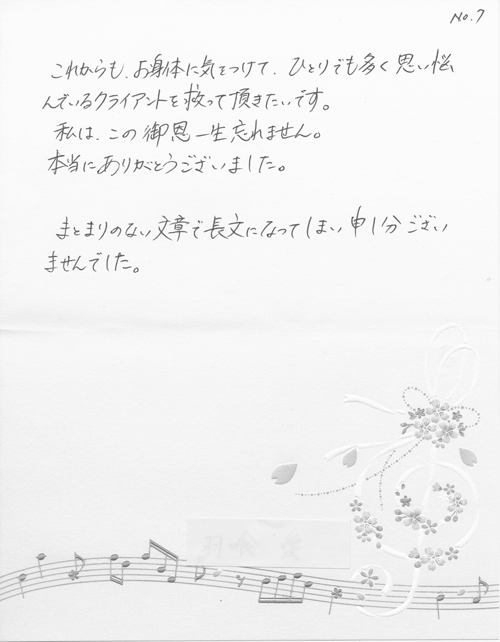 No.7
これからも、お身体に気をつけて、ひとりでも多く思い悩
んでいるクライアントを救って頂きたいです。
私は、この御恩一生忘れません。
本当にありがとうございました。
まとまりのない文章で長文になってしまい申し分ござい
ませんでした。